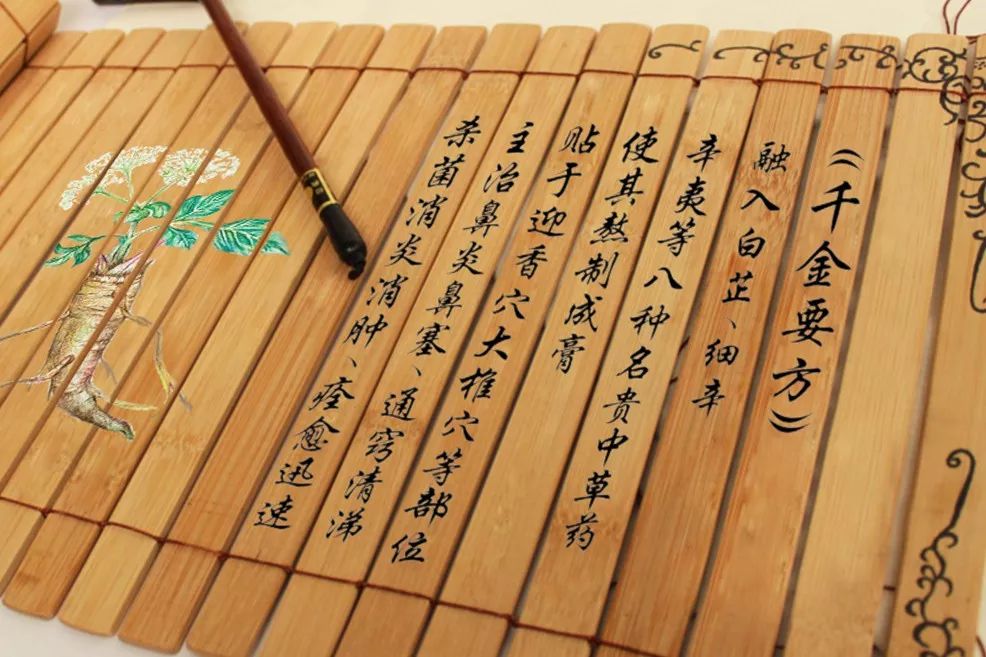 《千金要方》
融入白芷、细辛
辛夷等八种名贵中草药
使其熬制成膏
贴于迎香穴大椎穴等部位
主治鼻炎鼻塞、通窍清涕
杀菌消炎消肿、痊愈迅速